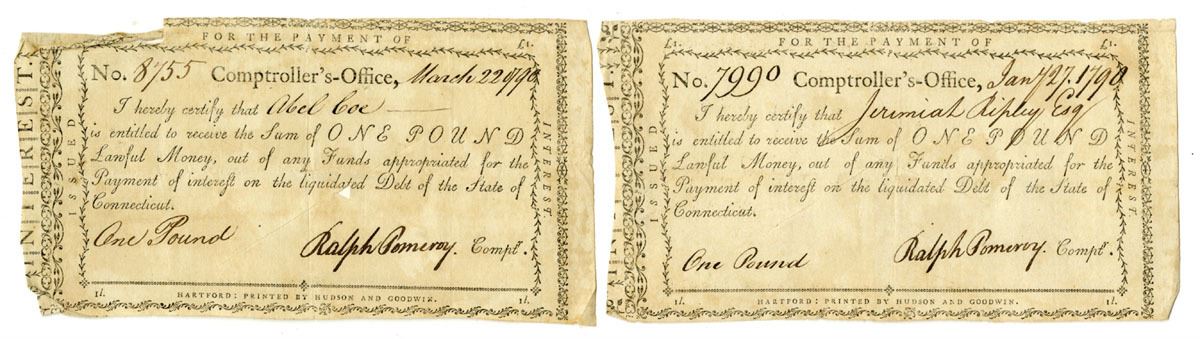 FOR THE PAYMENT OF £1.
No. 8755 Comptroller's-Office, March 22 1790
I hereby certify that Abel Coe
is entitled to receive the Sum of ONE POUND
Lawful Money, out of any Funds appropriated for the
Payment of interest on the liquidated Debt of the State of
Connecticut.
One Pound
Ralph Pomeroy. Comptr.
1l. HARTFORD: PRINTED BY HUDSON AND GOODWIN. 1l.
ISSUED
INTEREST.
INTEREST.
£1. FOR THE PAYMENT OF £1.
No. 7990 Comptroller's-Office, Jany 27. 1790
I hereby certify that Jerimiah Ripley Esqr
is entitled to receive the Sum of ONE POUND
Lawful Money, out of any Funds appropriated for the
Payment of interest on the liquidated Debt of the State of
Connecticut.
One Pound
Ralph Pomeroy. Comptr.
1l. HARTFORD: PRINTED BY HUDSON AND GOODWIN. 1l.
ISSUED
INTEREST.